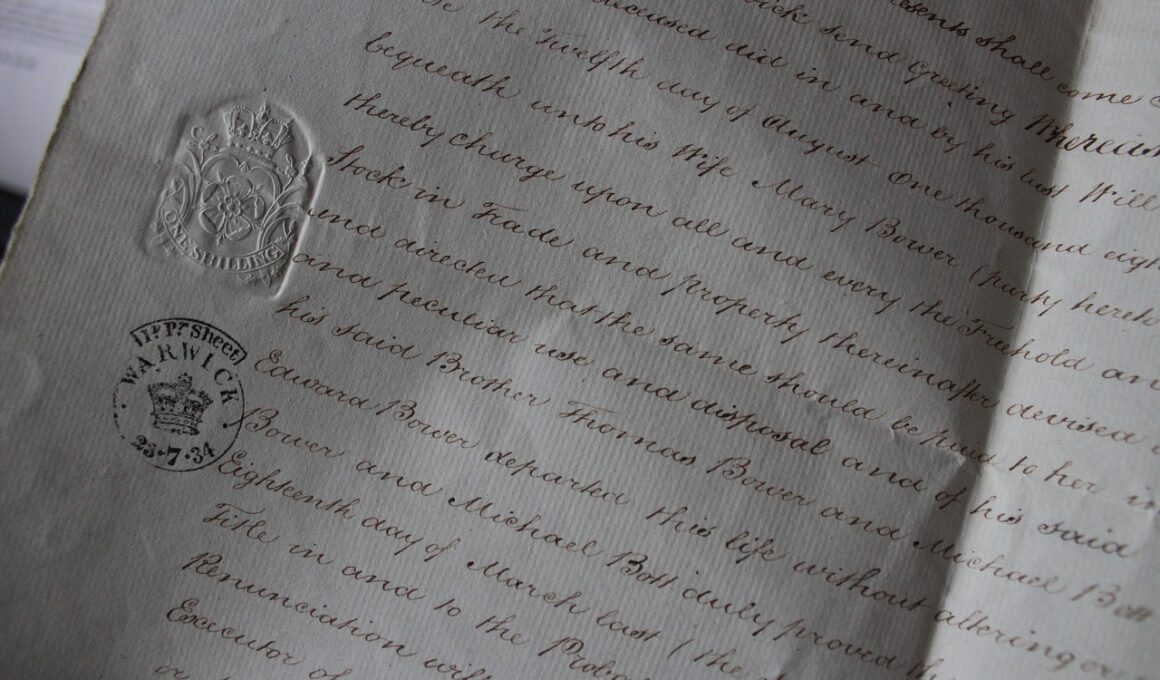 shall come
send Greeting Whereas
deceased did in and by his last Will
the Twelfth day of August One thousand eigh
bequeath unto his Wife Mary Bower (party hereto
thereby charge upon all and every the Freehold an
Stock in Trade and property thereinafter devised
and directed that the same should be paid to her in
and peculiar use and disposal and of his said
his said Brother Thomas Bower and Michael Bott
Edward Bower departed this life without altering or
Bower and Michael Bott duly proved th
Eighteenth day of March last (the
Title in and to the Proba
Renunciation wi
Executor of
ONE SHILLING
Pr Sheet
WARWICK
23·7·34